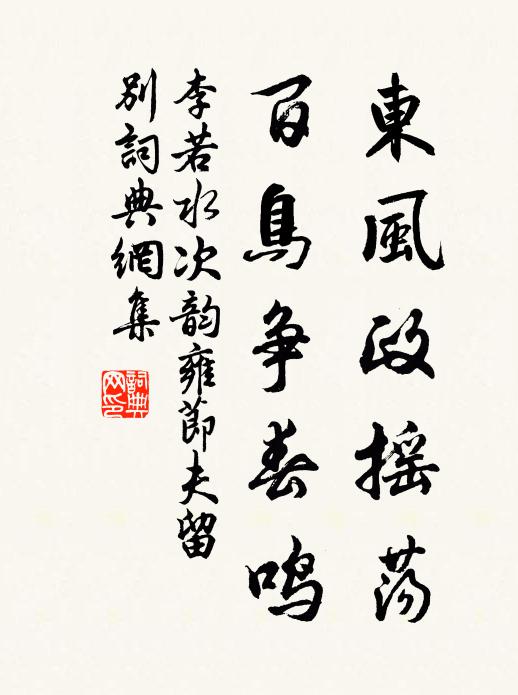 東風政摇蕩
百鳥争春鳴
李若水次韵雍節夫留
別詞典網集
詞典
网印